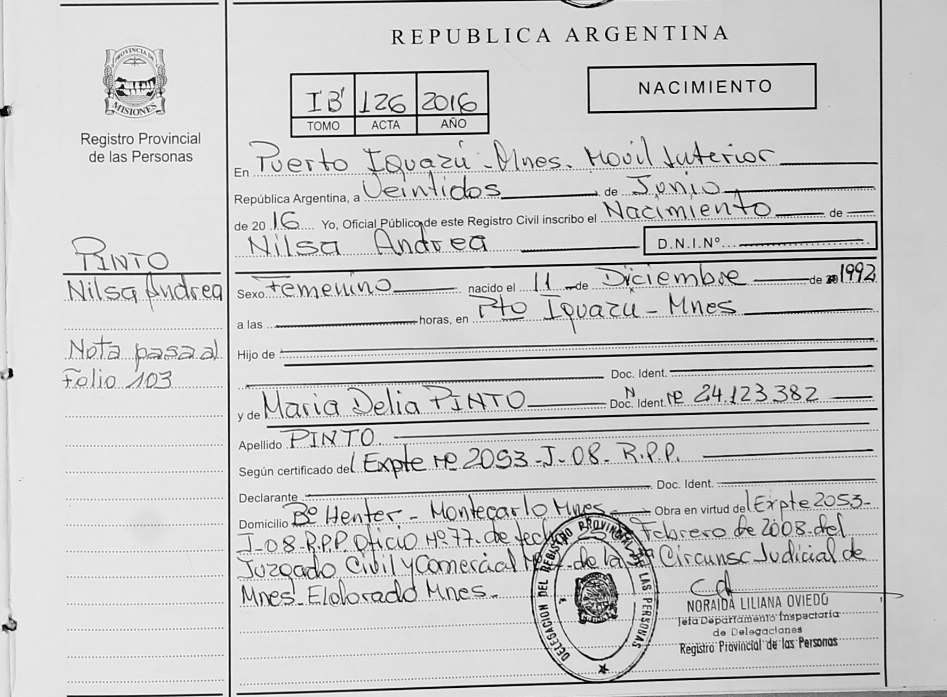 REPUBLICA ARGENTINA
PROVINCIA DE
MISIONES
Registro Provincial
de las Personas
IB' 126 2016
TOMO ACTA AÑO
NACIMIENTO
En Puerto Iguazú - Mnes. Movil Interior
República Argentina, a Veintidos de Junio
de 2016 Yo, Oficial Público de este Registro Civil inscribo el Nacimiento de
Nilsa Andrea D.N.I.Nº
PINTO
Nilsa Andrea
Nota pasa al
Folio 103
Sexo Femenino nacido el 11 de Diciembre de 1992
a las horas, en Pto Iguazu - Mnes
Hijo de
Doc. Ident.
y de Maria Delia PINTO Doc. Ident. Nº 24.123.382
Apellido PINTO
Según certificado del Expte Nº 2053-J-08- R.P.P.
Declarante Doc. Ident.
Domicilio Bº Henter - Montecarlo Mnes Obra en virtud del Expte 2053-
J-08-R.P.P. Oficio Nº 77. de fecha Febrero de 2008. del
Juzgado Civil y Comercial de la Circunsc Judicial de
Mnes. Eldorado Mnes.
DELEGACION DEL REGISTRO PROVINCIAL DE LAS PERSONAS
NORAIDA LILIANA OVIEDO
Jefa Departamento Inspectoria
de Delegaciones
Registro Provincial de las Personas